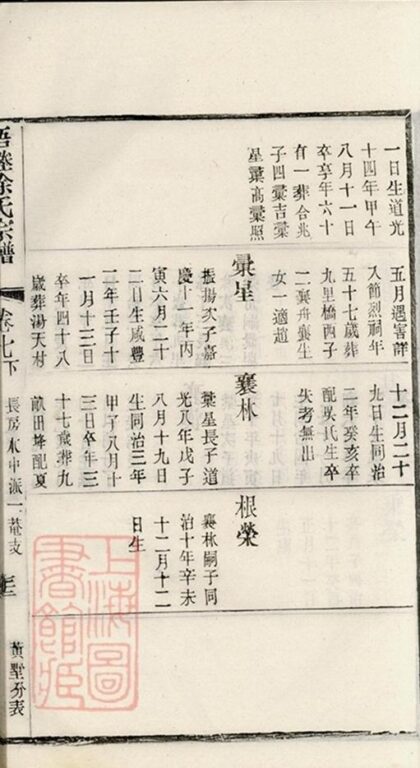 一日生道光
十四年甲午
八月十一日
卒享年六十
有一葬合兆
子四彚吉彚
星彚高彚照
五月遇害詳
入節烈祠年
五十七歲葬
九里橋西子
二襄舟襄生
女一適趙
彚星
振揚次子嘉
慶十一年丙
寅六月二十
二日生咸豐
二年壬子十
一月十三日
卒年四十八
歲葬湯天村
十二月二十
九日生同治
二年癸亥卒
配吳氏生卒
失考無出
襄林
彚星長子道
光八年戊子
八月十九日
生同治三年
甲子八月十
三日卒年三
十七歲葬九
畝田配夏
根榮
襄林嗣子同
治十年辛未
十二月十二
日生
梧塍徐氏宗譜
卷七下
長房水中派一菴支
黃墅分表
上海圖書館藏